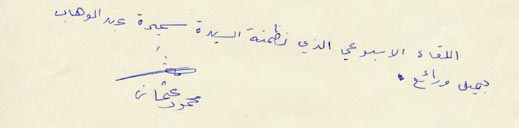 اللقاء الاسبوعي الذي نظمته السيدة سميرة عبد الوهاب
جميل ورائع .
محمود عثمان